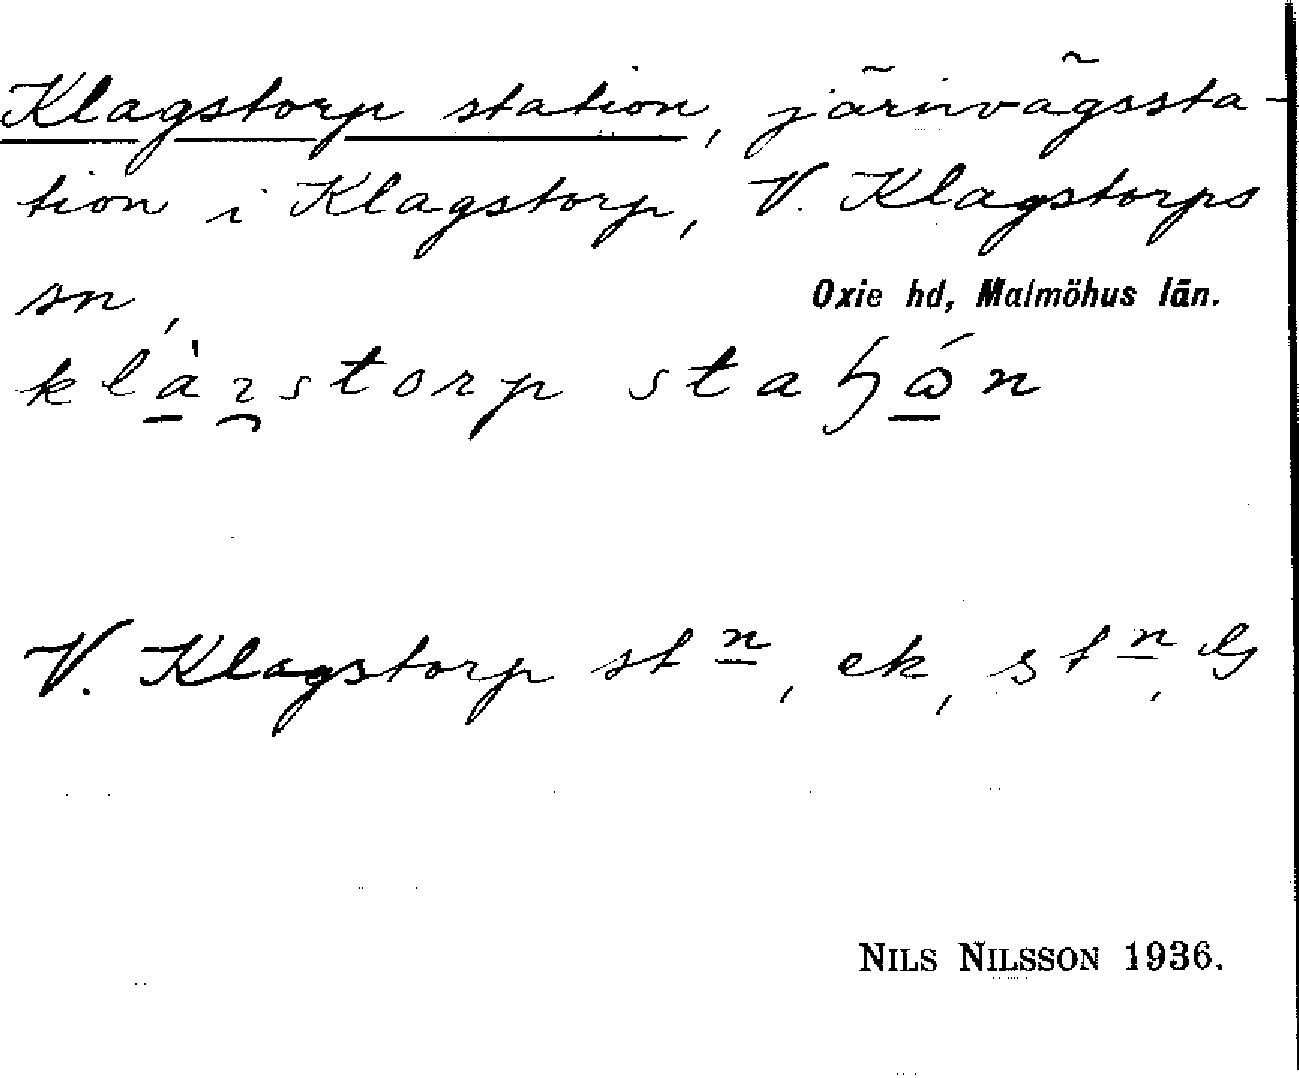 Klagstorp station, järnvägssta-
tion i Klagstorp, V. Klagstorps
sn,
Oxie hd, Malmöhus län.
V. Klagstorp stn, ek, stn,
NILS NILSSON 1936.